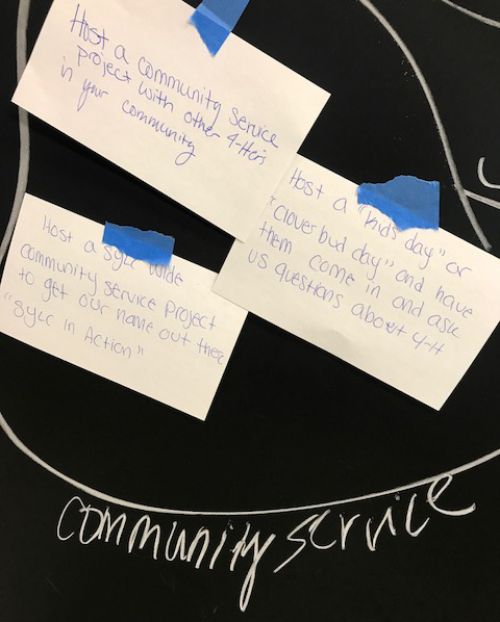 Host a community service
project with other 4-Hers
in your community
Host a "kids day" or
"cloverbud day" and have
them come in and ask
us questions about 4-H
Host a SYLC wide
community service project
to get our name out there
"SYLC in Action"
community service